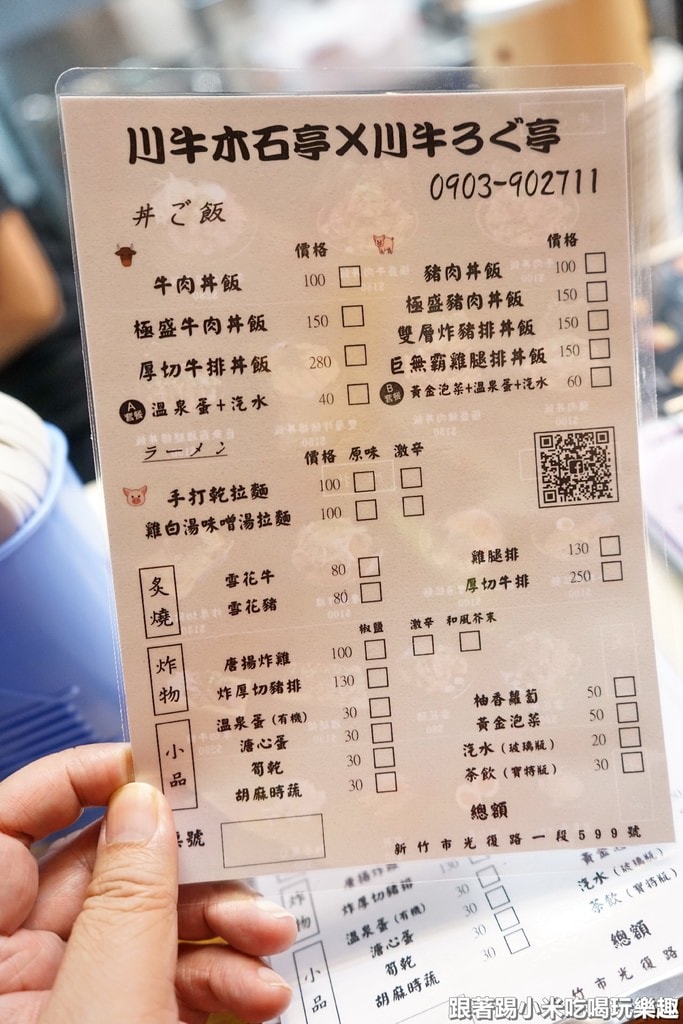 川牛木石亭X川牛ろぐ亭
0903-902711
丼ご飯
價格
牛肉丼飯 100
極盛牛肉丼飯 150
厚切牛排丼飯 280
A套餐 溫泉蛋+汽水 40
價格
豬肉丼飯 100
極盛豬肉丼飯 150
雙層炸豬排丼飯 150
巨無霸雞腿排丼飯 150
B套餐 黃金泡菜+溫泉蛋+汽水 60
ラーメン
價格 原味 激辛
手打乾拉麵 100
雞白湯味噌湯拉麵 100
炙燒
雪花牛 80
雪花豬 80
雞腿排 130
厚切牛排 250
椒鹽 激辛 和風芥末
炸物
唐揚炸雞 100
炸厚切豬排 130
小品
溫泉蛋(有機) 30
溏心蛋 30
筍乾 30
胡麻時蔬 30
柚香蘿蔔 50
黃金泡菜 50
汽水(玻璃瓶) 20
茶飲(寶特瓶) 30
總額
號
新竹市光復路一段599號
唐揚炸雞
炸物
炸厚切豬排 30
溫泉蛋(有機) 30
小品
溏心蛋 30
筍乾 30
胡麻時蔬
黃金泡菜
汽水(玻璃瓶)
茶飲(寶特瓶)
總額
竹市光復路
跟著踢小米吃喝玩樂趣